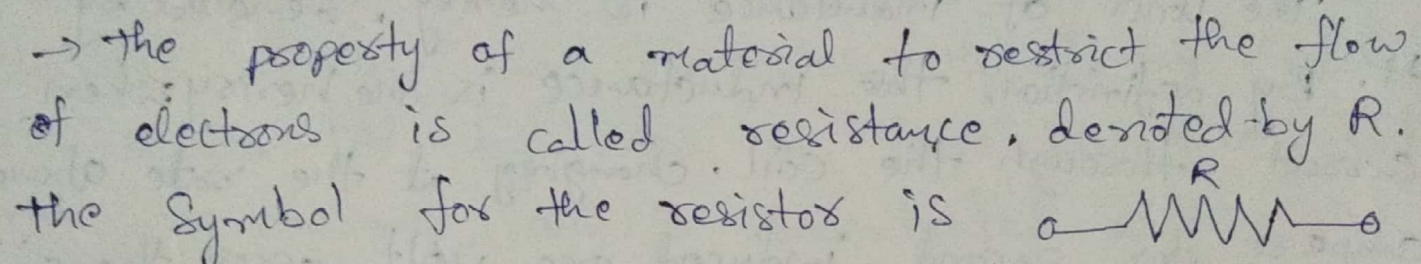 → the property of a material to restrict the flow
of electrons is called resistance, denoted by R.
the Symbol for the resistor is R